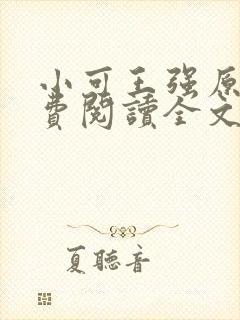 小可王强原
費閱讀全文
夏聽音